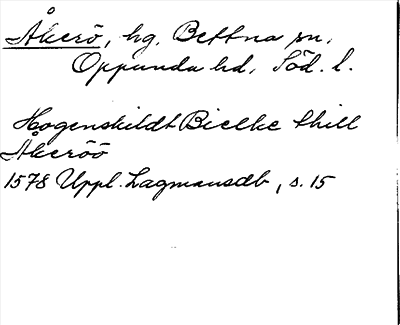 Åkerö, hg, Bettna sn,
Oppunda hd, Söd. l.
Hogenskildt Bielke thill
Åkeröö
1578 Uppl. Lagmansdb, s. 15